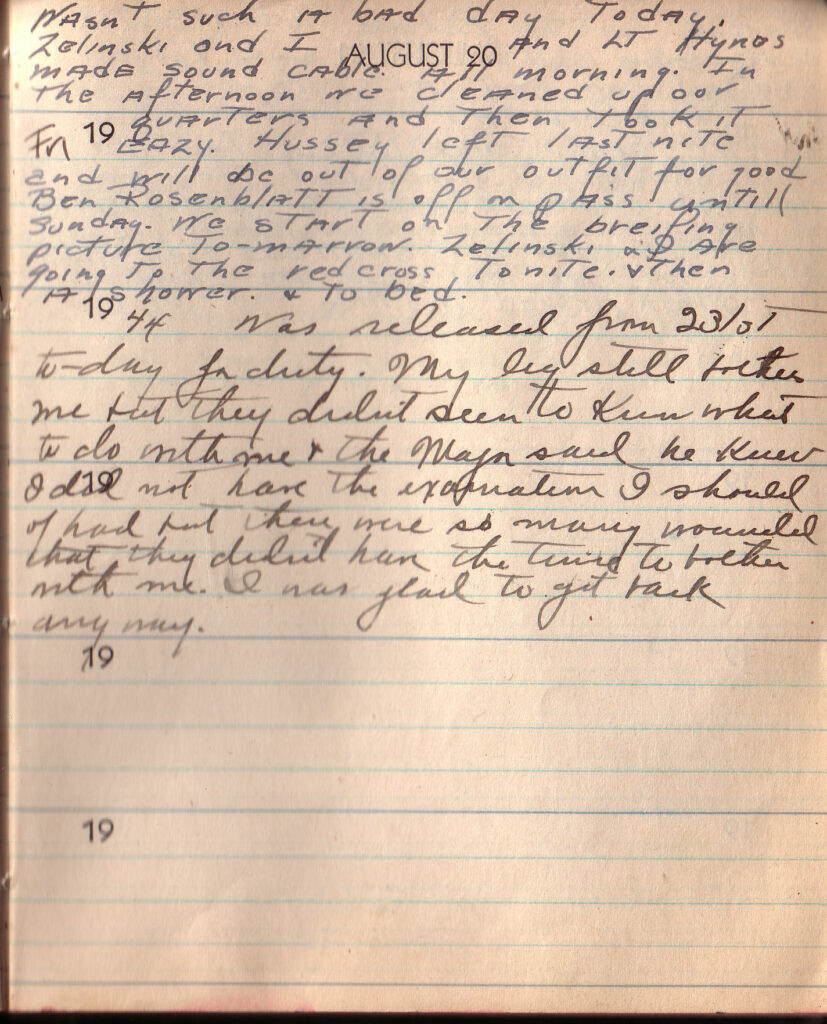 Wasnt such A bad day Today.
Zelinski and I and LT Hynes
AUGUST 20
made sound cable. All morning. In
The afternoon we cleaned up our
quarters and Then Took it
19
Eazy. Hussey left last nite
and will be out of our outfit for good
Ben Rosenblatt is off on pass untill
Sunday. We start on The breifing
picture To-marrow. Zelinski & I Are
going To The redcross Tonite. & Then
A shower. & To bed.
1944 Was released from 231st
to-day for duty. My leg still bothers
me but they didn't seem to know what
to do with me & the Major said he knew
19
I did not have the examination I should
of had but there were so many wounded
that they didn't have the time to bother
with me. I was glad to get back
anyway.
19
19